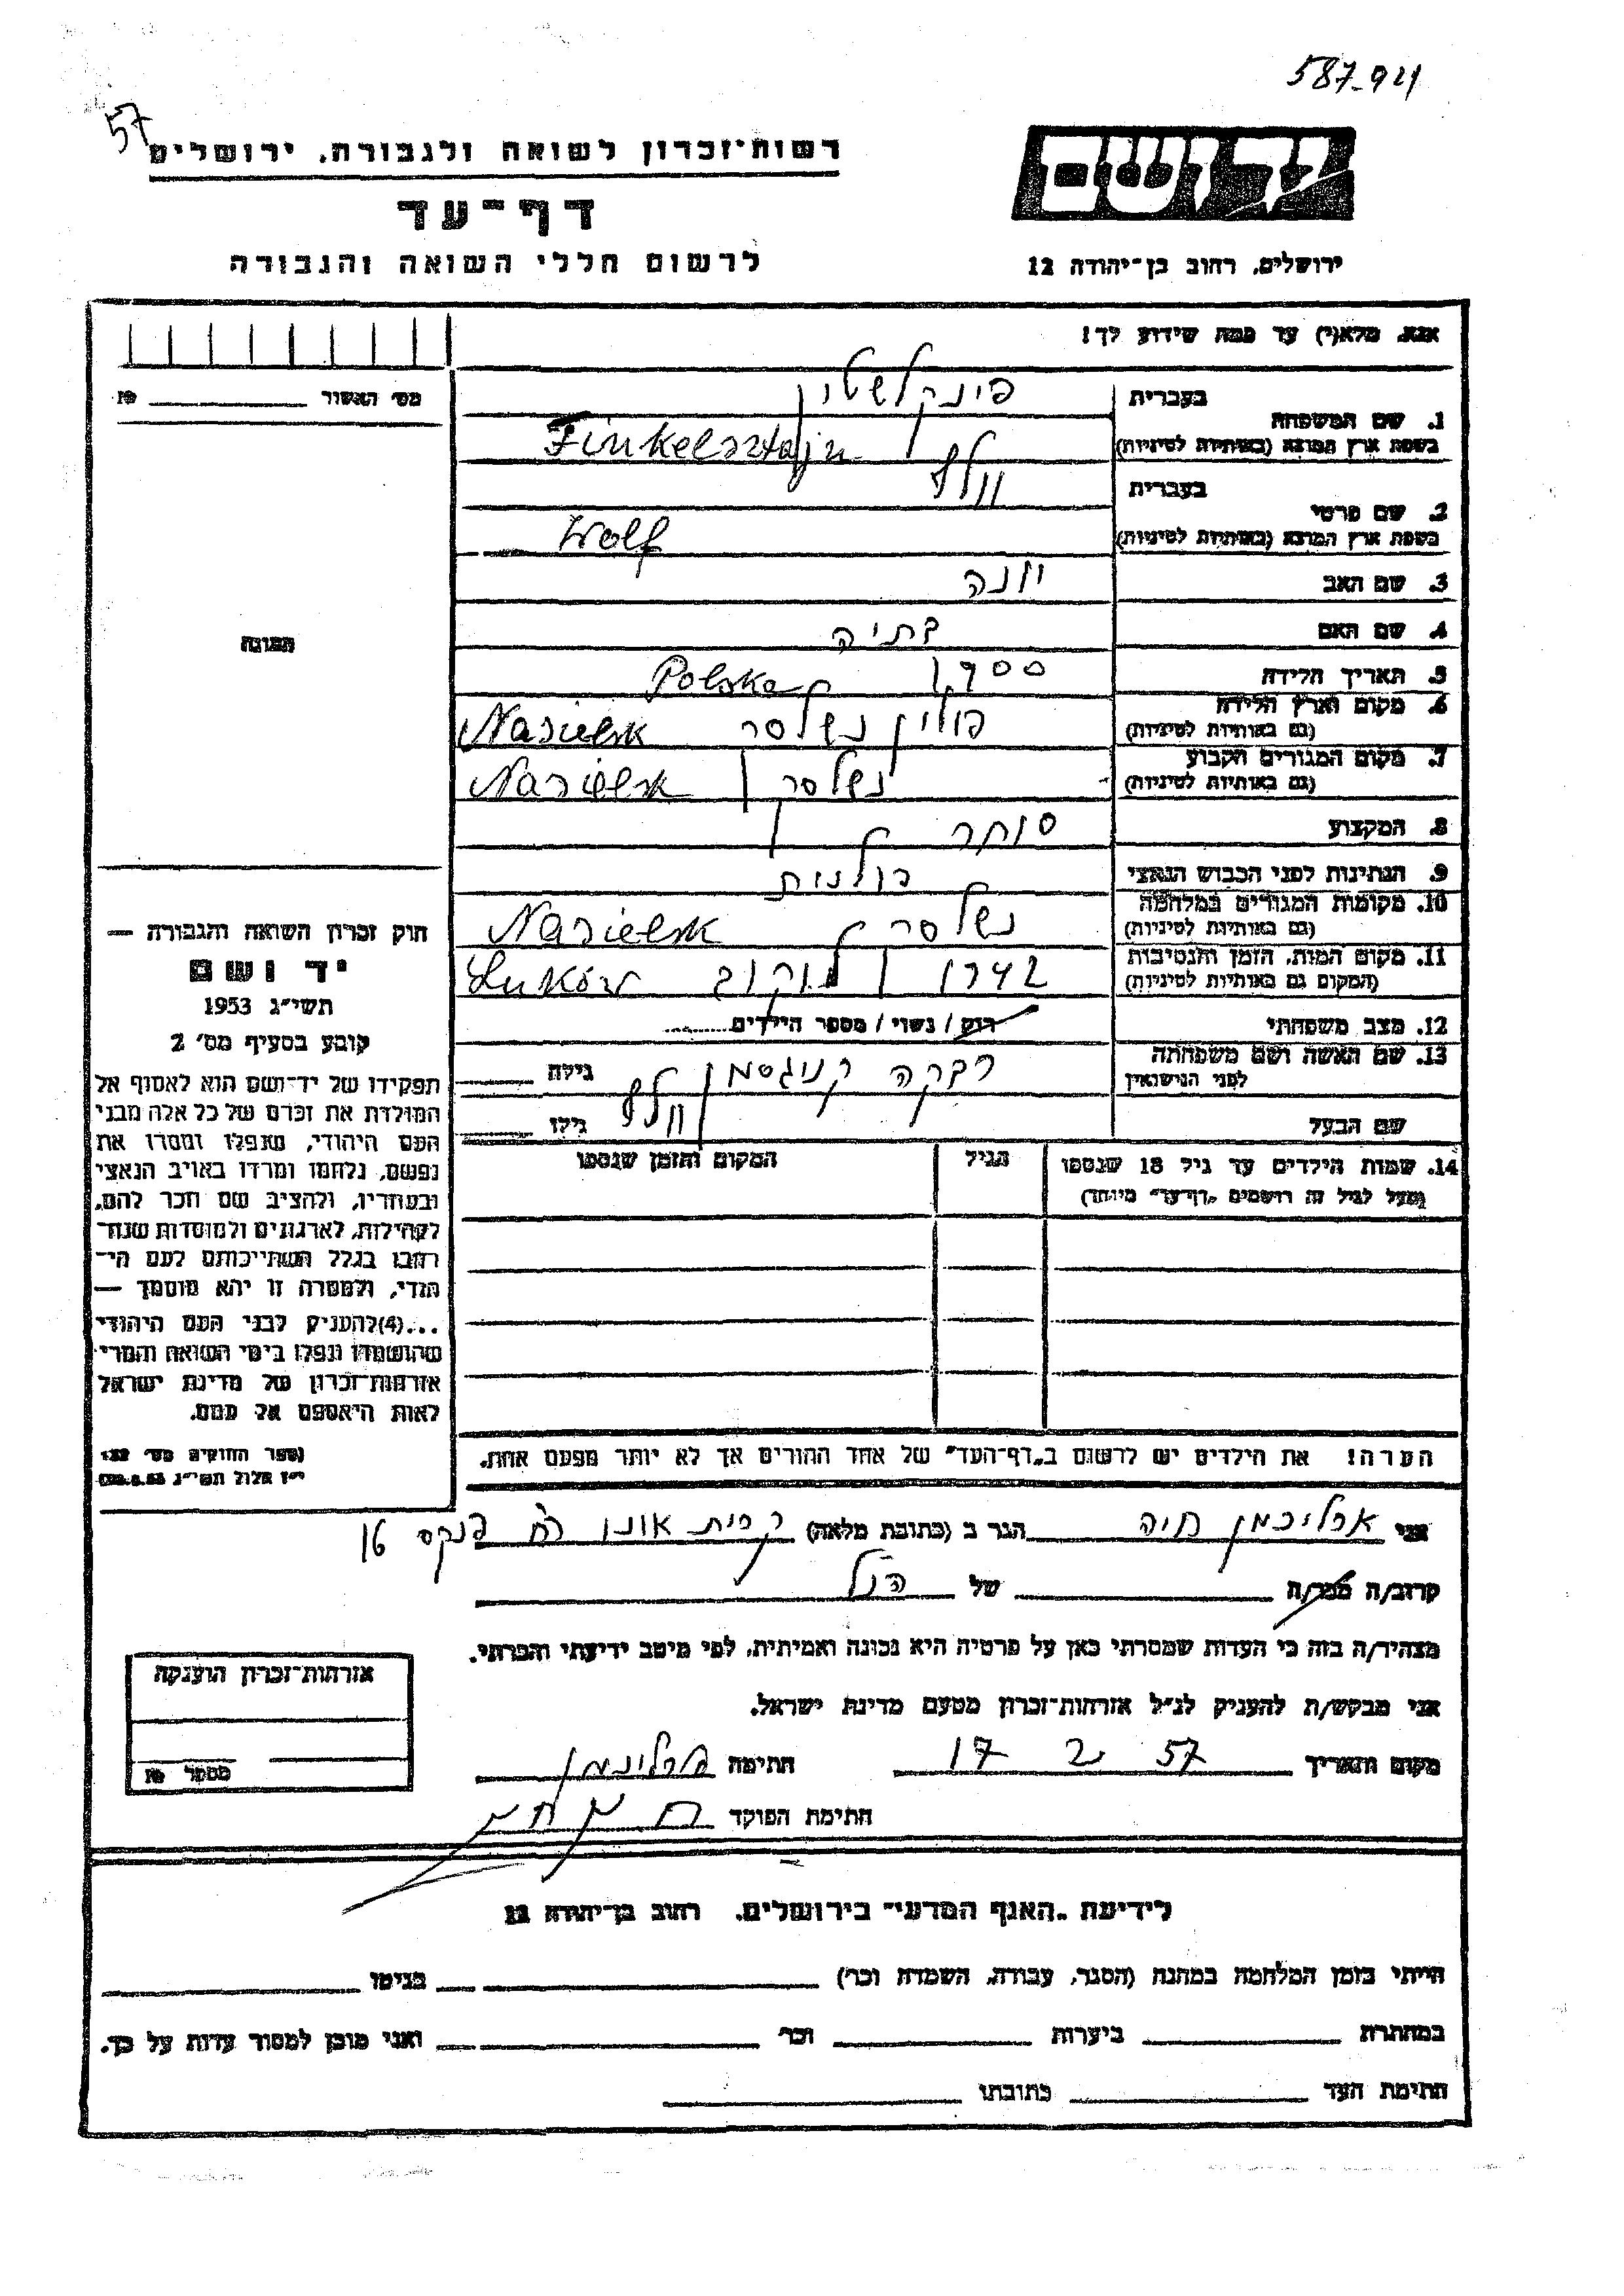 587-921
57
רשות־זכרון לשואה ולגבורה, ירושלים
יד ושם
דף־עד
לרשום חללי השואה והגבורה
ירושלים, רחוב בן־יהודה 12
אנא, מלא(י) עד כמה שידוע לך!
מס׳ האשור № 
1. שם המשפחה
בעברית פינקלשטין
בשפת ארץ המוצא (באותיות לטיניות) Finkelsztajn
2. שם פרטי
בעברית וולף
בשפת ארץ המוצא (באותיות לטיניות) Wolf
3. שם האב יונה
4. שם האם בתיה
5. תאריך הלידה 1900
6. מקום וארץ הלידה (גם באותיות לטיניות) פולין נשלסק Nasielsk Polska
7. מקום המגורים הקבוע (גם באותיות לטיניות) נשלסק Nasielsk
8. המקצוע סוחר
9. הנתינות לפני הכבוש הנאצי פולנית
10. מקומות המגורים במלחמה (גם באותיות לטיניות) נשלסק Nasielsk
11. מקום המות, הזמן והנסיבות (המקום גם באותיות לטיניות) 1942 לוקוב Łuków
12. מצב משפחתי רוק / נשוי / מספר הילדים
13. שם האשה ושם משפחתה לפני הנישואין רבקה קניגסמן גילה
שם הבעל וולף גילו
14. שמות הילדים עד גיל 18 שנספו
(מעל לגיל זה רושמים "דף־עד" מיוחד)
הגיל
המקום והזמן שנספו
הערה! את הילדים יש לרשום ב"דף־העד" של אחד ההורים אך לא יותר מפעם אחת.
התמונה
חוק זכרון השואה והגבורה —
יד ושם
תשי"ג 1953
קובע בסעיף מס׳ 2
תפקידו של יד־ושם הוא לאסוף אל
המולדת את זכרם של כל אלה מבני
העם היהודי, שנפלו ומסרו את
נפשם, נלחמו ומרדו באויב הנאצי
ובעוזריו, ולהציב שם וזכר להם,
לקהילות, לארגונים ולמוסדות שנח־
רבו בגלל השתייכותם לעם הי־
הודי, ולמטרה זו יהא מוסמך —
...(4) להעניק לבני העם היהודי
שהושמדו ונפלו בימי השואה והמרי
אזרחות־זכרון של מדינת ישראל
לאות היאספם אל עמם.
(ספר החוקים מס׳ 132
י"ז אלול תשי"ג 28.8.53)
אני חיה הגר ב (כתובת מלאה) קרית אונו רח פנקס
קרוב/ה מכר/ה של הנ"ל
מצהיר/ה בזה כי העדות שמסרתי כאן על פרטיה היא נכונה ואמיתית, לפי מיטב ידיעתי והכרתי.
אני מבקש/ת להעניק לנ"ל אזרחות־זכרון מטעם מדינת ישראל.
מקום ותאריך 17 2 57 חתימה
חתימת הפוקד
אזרחות־זכרון הוענקה
מספר №
לידיעת "האגף המדעי" בירושלים, רחוב בן־יהודה 12
הייתי בזמן המלחמה במחנה (הסגר, עבודה, השמדה וכו׳) בגיטו
במחתרת ביערות וכו׳ ואני מוכן למסור עדות על כך.
חתימת העד כתובתו